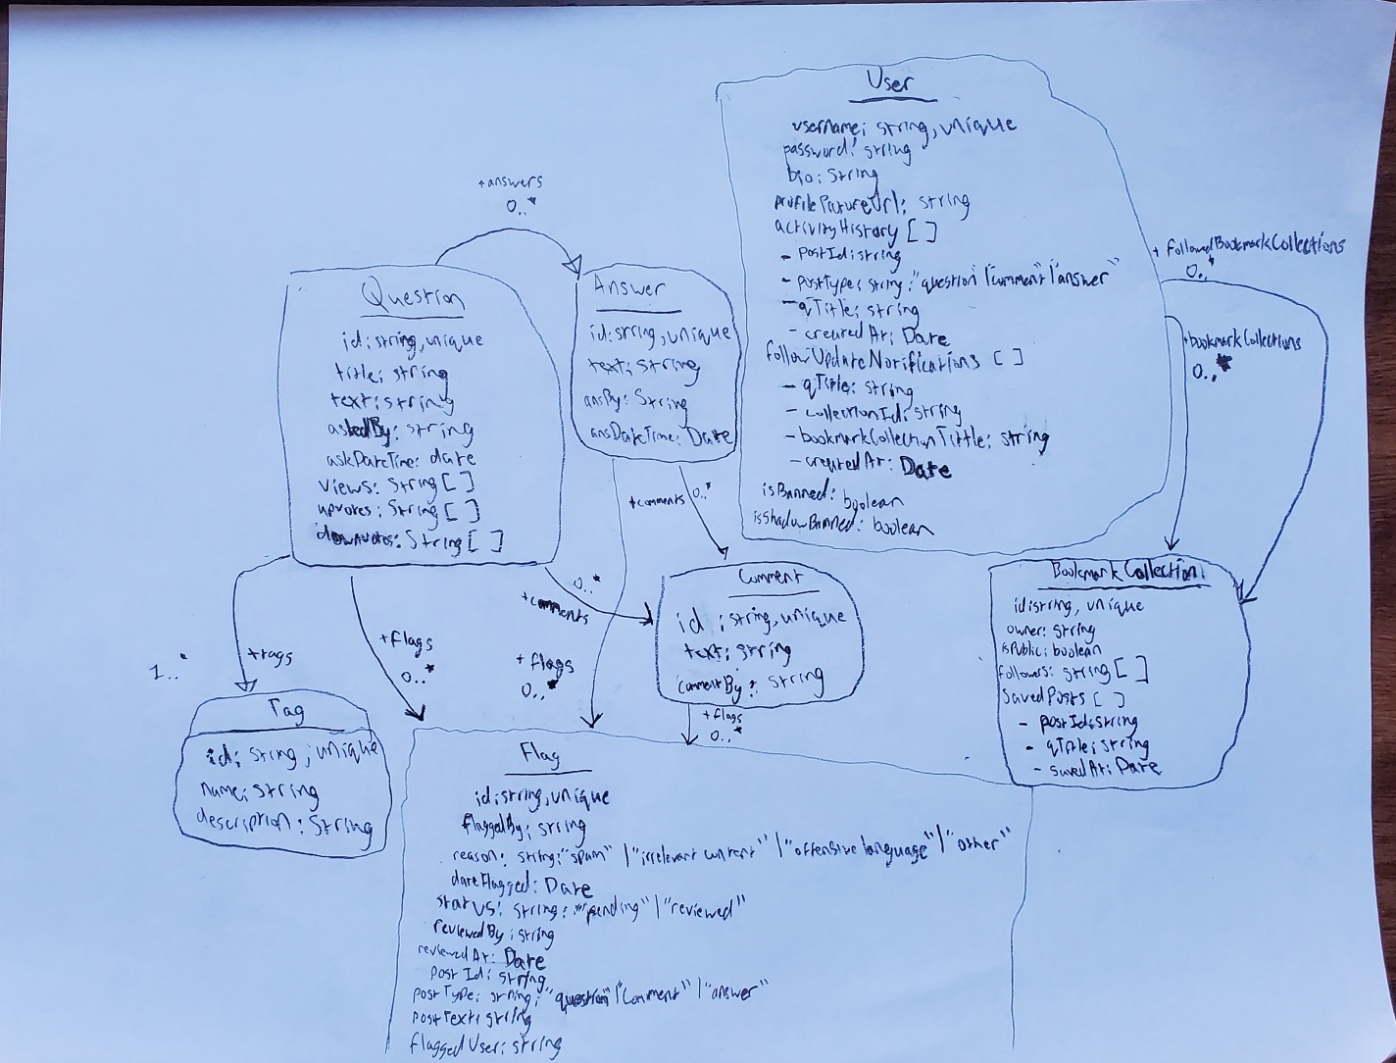 User
username: string, unique
password: string
bio: string
profilePictureUrl: string
activityHistory [ ]
- postId: string
- postType: string: "question" | "comment" | "answer"
- qTitle: string
- createdAt: Date
followUpdateNotifications [ ]
- qTitle: string
- collectionId: string
- bookmarkCollectionTittle: string
- createdAt: Date
isBanned: boolean
isShadowBanned: boolean
+answers
0..*
+ followedBookmarkCollections
0..*
+bookmarkCollections
0..*
Question
id: string, unique
title: string
text: string
askedBy: string
askDateTime: date
views: String [ ]
upvotes: String [ ]
downvotes: String [ ]
Answer
id: string, unique
text: string
ansBy: String
ansDateTime: Date
+comments 0..*
0..*
+comments
+tags
1..*
+flags
0..*
+ flags
0..*
Comment
id : string, unique
text: string
commentBy : string
+flags
0..*
BookmarkCollection
id: string, unique
owner: string
isPublic: boolean
followers: string [ ]
savedPosts [ ]
- postId: string
- qTitle: string
- savedAt: Date
Tag
id: string, unique
name: string
description: String
Flag
id: string, unique
flaggedBy: string
reason: string: "spam" | "irrelevant content" | "offensive language" | "other"
dateFlagged: Date
status: string: "pending" | "reviewed"
reviewedBy: string
reviewedAt: Date
postId: string
postType: string: "question" | "comment" | "answer"
postText: string
flaggedUser: string